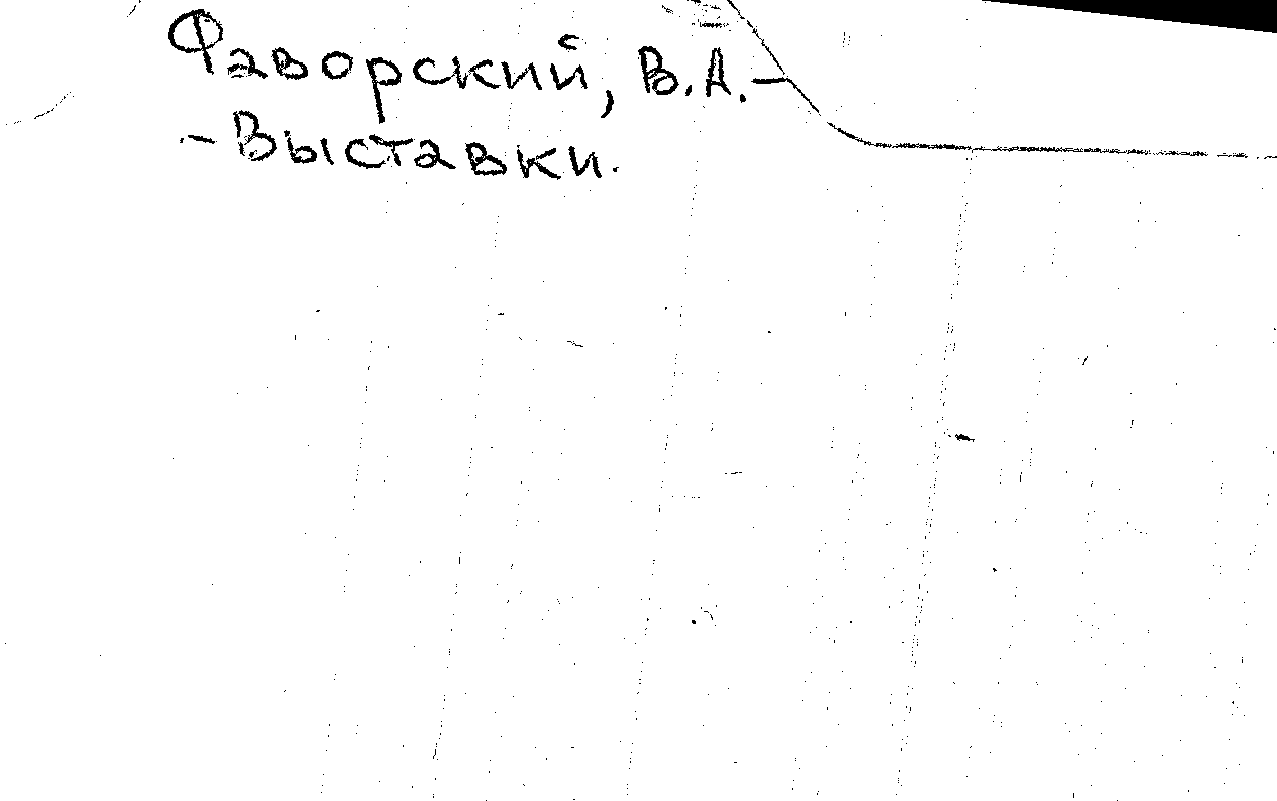 Фаворский, В.А.-
-Выставки.